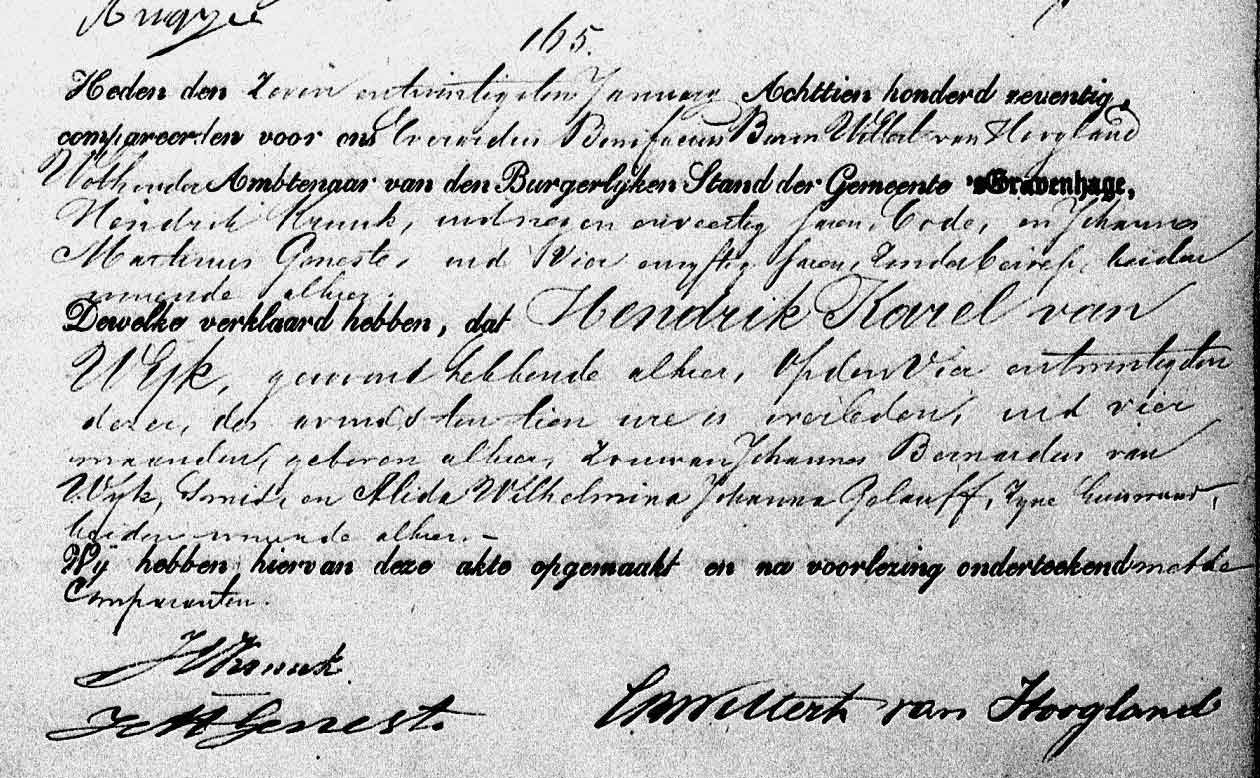 165.
Heden den Zeven entwintigsten Januarij Achttien honderd zeventig,
compareerden voor ons Everardus Bonifacius Baron Wittert van Hoogland
Wethouder Ambtenaar van den Burgerlijken Stand der Gemeente 's Gravenhage,
Hendrik Kronk, oud negen en veertig Jaren, Bode, en Johannes
Martinus Geneste, oud Vier en vyftig Jaren, Zonder beroep, beiden
wonende alhier.
Dewelke verklaard hebben, dat Hendrik Karel van
Wijk, gewoond hebbende alhier, Op den Vier entwintigsten
dezer, des avonds ten tien ure is overleden, oud vier
maanden, geboren alhier, Zoon van Johannes Bernardus van
Wyk, Smid, en Alida Wilhelmina Johanna Gelauff, Zyne huisvrouw,
beiden wonende alhier. -
Wij hebben hiervan deze akte opgemaakt en na voorlezing onderteekend met de
Comparanten.
H Kronk
J M Genest.
Wittert van Hoogland